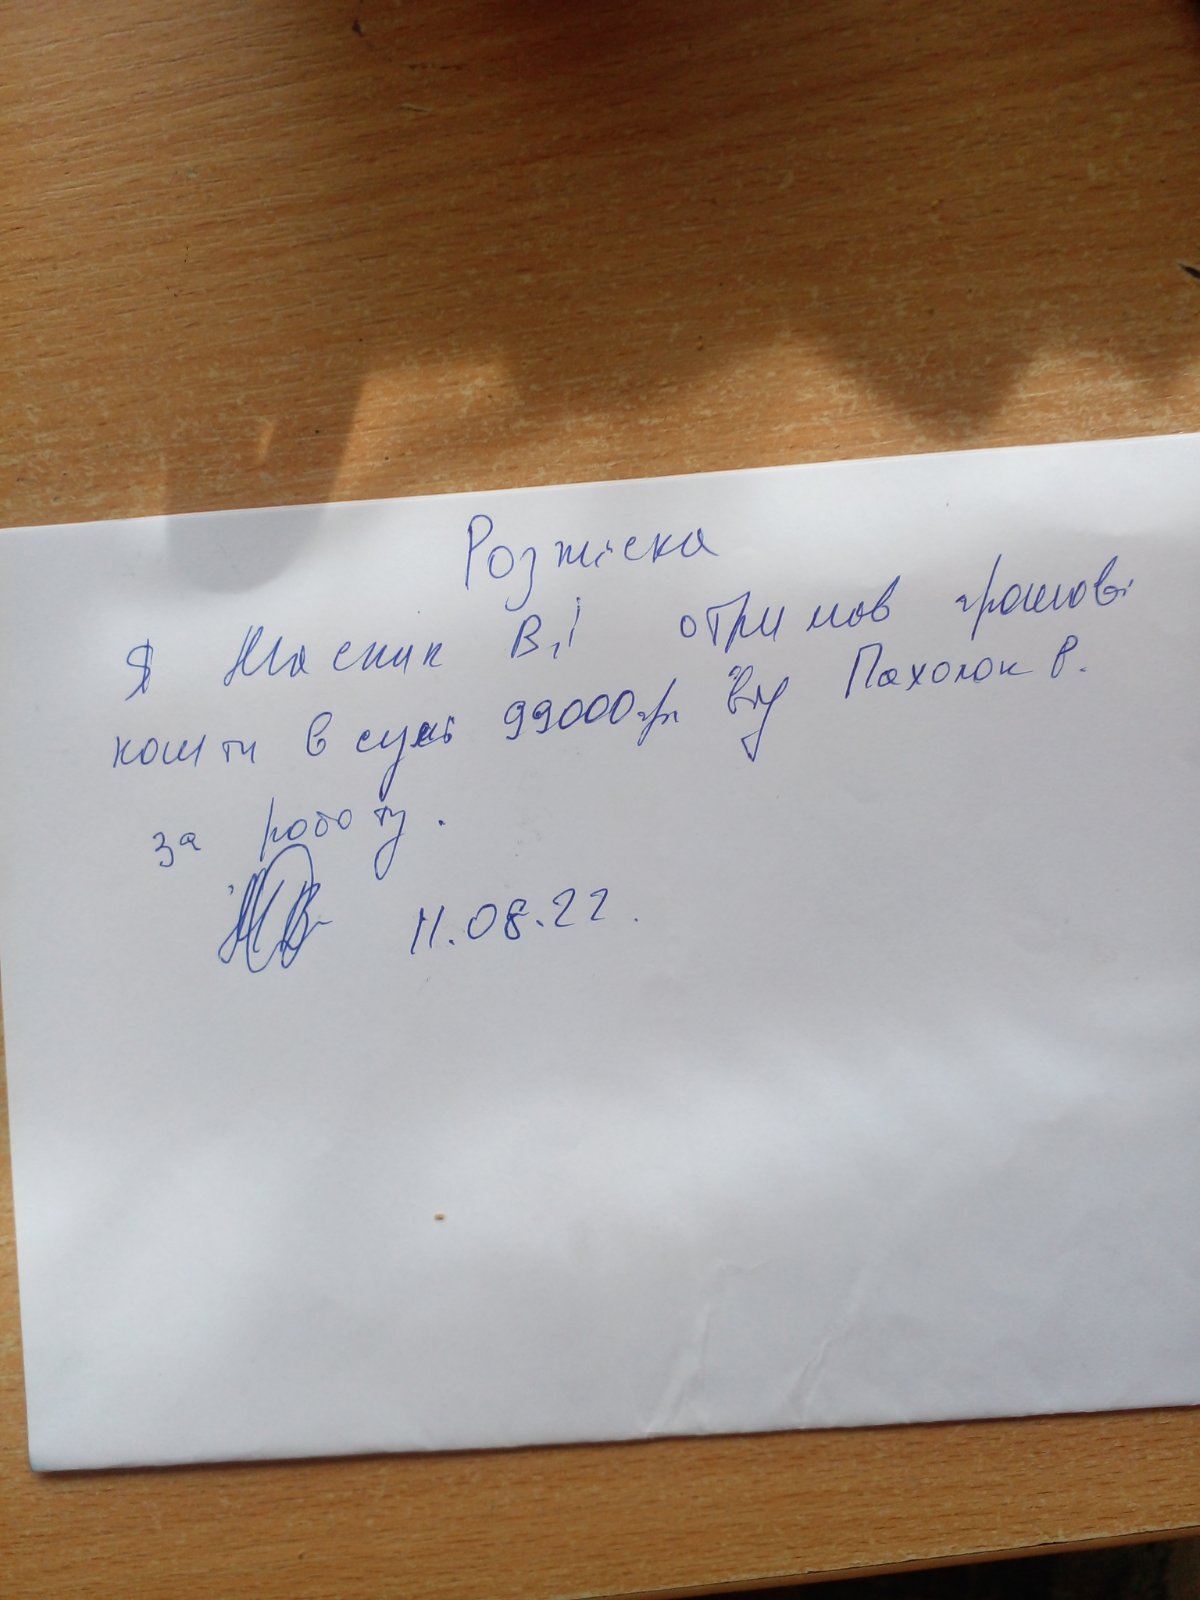 Розписка
Я В.І отримав грошові
кошти в сумі 99000грн від Пахолок Р.
за роботу.
11.08.22.